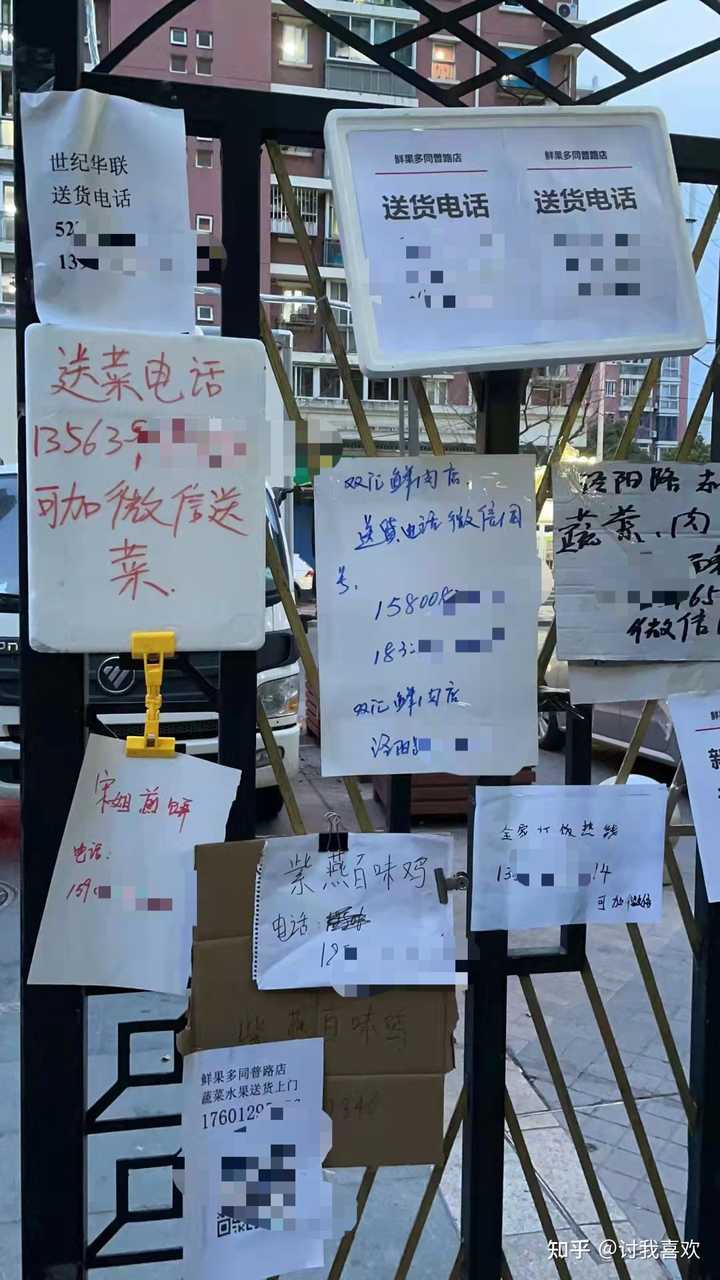 世纪华联
送货电话
52
13
鲜果多同普路店
送货电话
鲜果多同普路店
送货电话
送菜电话
13563
可加微信送
菜.
双汇鲜肉店
送货电话微信同
号.
15800
183
双汇鲜肉店
洛阳
洛阳路
蔬菜、肉
465
微信
宋姐煎饼
电话:
159
紫燕百味鸡
电话:
紫燕百味鸡
全家订饭热线
13 14
可加微信
鲜果多同普路店
蔬菜水果送货上门
1760129
知乎 @讨我喜欢